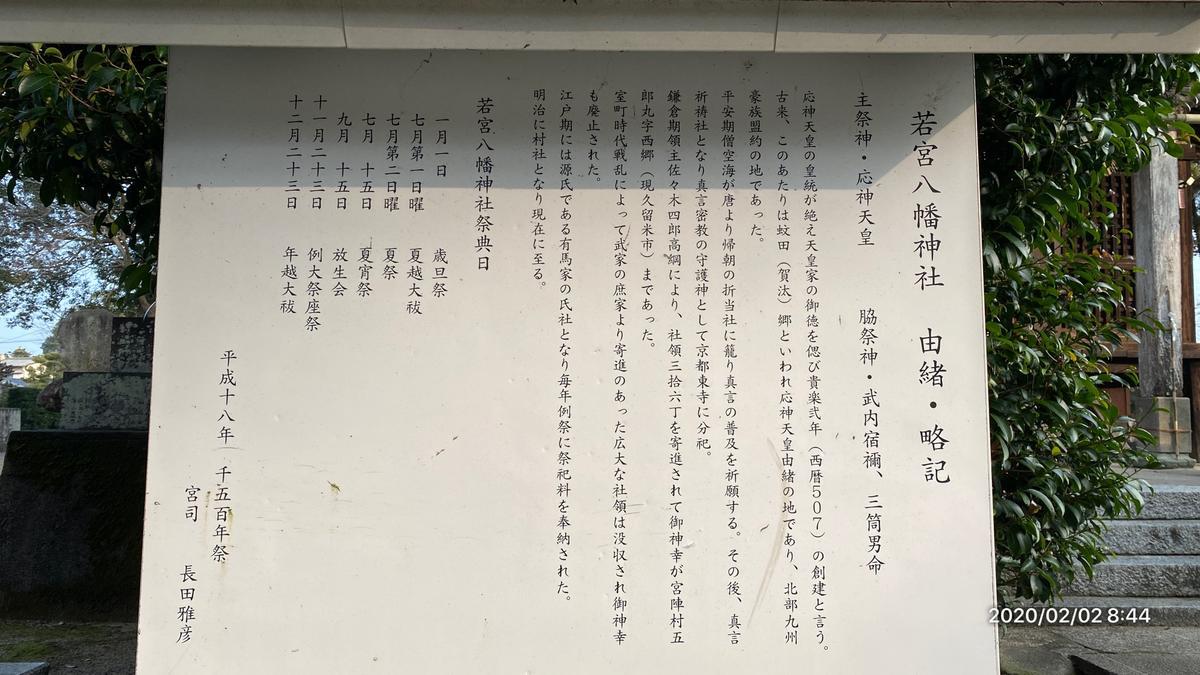 若宮八幡神社　由緒・略記
主祭神・応神天皇　脇祭神・武内宿禰、三筒男命
応神天皇の皇統が絶え天皇家の御徳を偲び貴楽弐年（西暦５０７）の創建と言う。
古来、このあたりは蚊田（賀汰）郷といわれ応神天皇由緒の地であり、北部九州
豪族盟約の地であった。
平安期僧空海が唐より帰朝の折当社に籠り真言の普及を祈願する。その後、真言
祈祷社となり真言密教の守護神として京都東寺に分祀。
鎌倉期領主佐々木四郎高綱により、社領三拾六丁を寄進されて御神幸が宮陣村五
郎丸字西郷（現久留米市）まであった。
室町時代戦乱によって武家の庶家より寄進のあった広大な社領は没収され御神幸
も廃止された。
江戸期には源氏である有馬家の氏社となり毎年例祭に祭祀料を奉納された。
明治に村社となり現在に至る。
若宮八幡神社祭典日
一月一日　歳旦祭
七月第一日曜　夏越大祓
七月第二日曜　夏祭
七月　十五日　夏宵祭
九月　十五日　放生会
十一月二十三日　例大祭座祭
十二月二十三日　年越大祓
平成十八年　千五百年祭
宮司　長田雅彦
2020/02/02 8:44